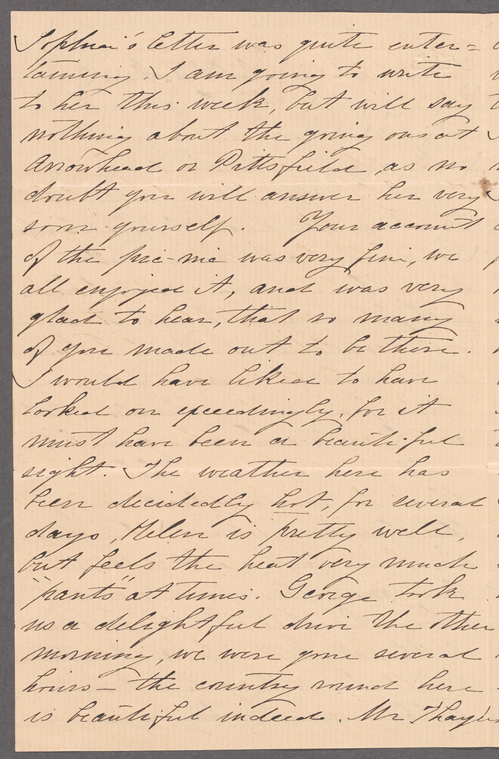 Sophia's letter was quite enter=
taining. I am going to write
to her this week, but will say
nothing about the going ons at
Arrowhead or Pittsfield, as no
doubt you will answer her very
soon yourself. Your account
of the pic-nic was very fine, we
all enjoyed it, and was very
glad to hear, that so many
of you made out to be there.
I would have liked to have
looked on exceedingly, for it
must have been a beautiful
sight. The weather here has
been decidedly hot, for several
days, Helen is pretty well,
but feels the heat very much
"pants" at times. George took
us a delightful drive the other
morning, we were gone several
hours — the country round here
is beautiful indeed. Mr Thayer